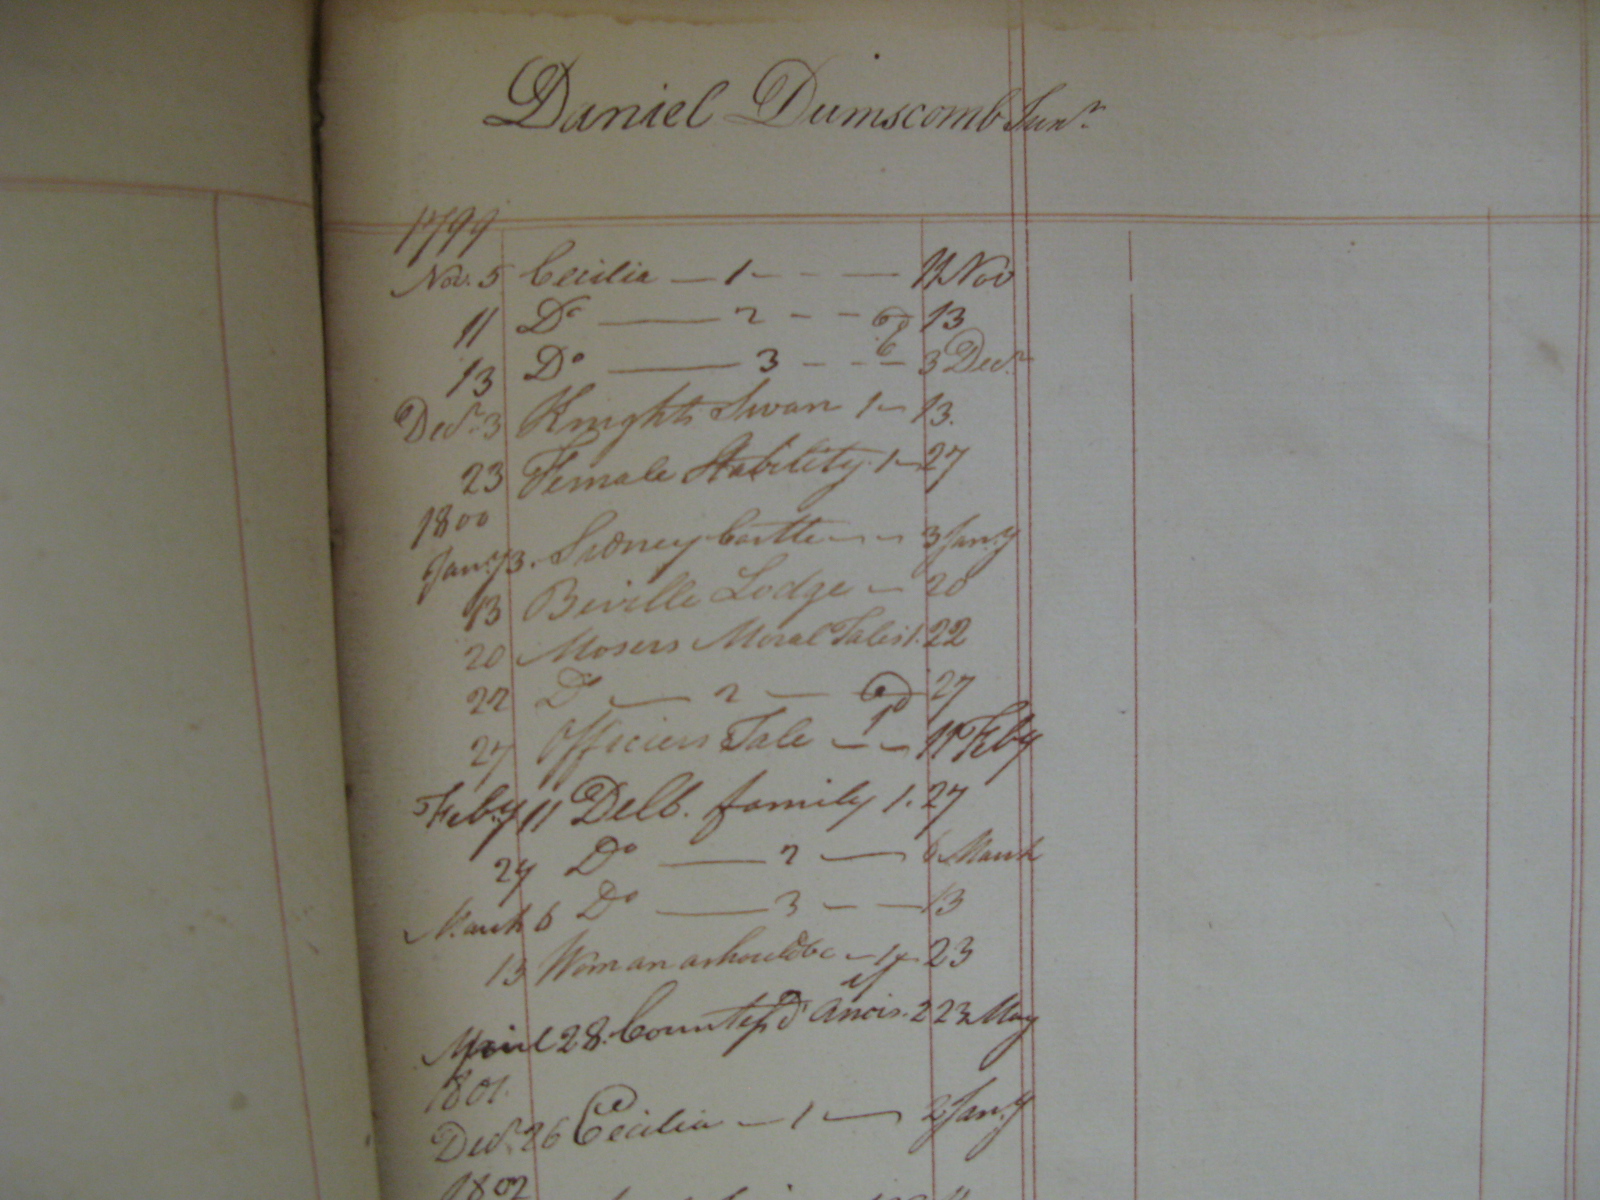 Daniel Dumscomb Junr
1799
Nov. 5 Cecilia — 1 - - — 11 Nov
11 Do — 2 - - 6d 13
13 Do — 3 - - 6 - 3 Decr
Decr. 3 Knights Swan 1 - 13.
23 Female Stability. 1 - 27
1800
Jany 3. Sidney Castle - - 3 Jany
13 Beville Lodge - 20
20 Mosers Moral Tales 1. 22
22 Do — 2 — 6d 27
27 Officiers Tale - - 11 Feby
Feby 11 Delb. family 1. 27
27 Do — 2 — 6 March
March 6 Do — 3 - — 13
13 Woman as shouldbe - 23
April 28. Countess d' 2 23 May
1801.
Decr. 26 Cecilia — 1 — 2 Jany
1802